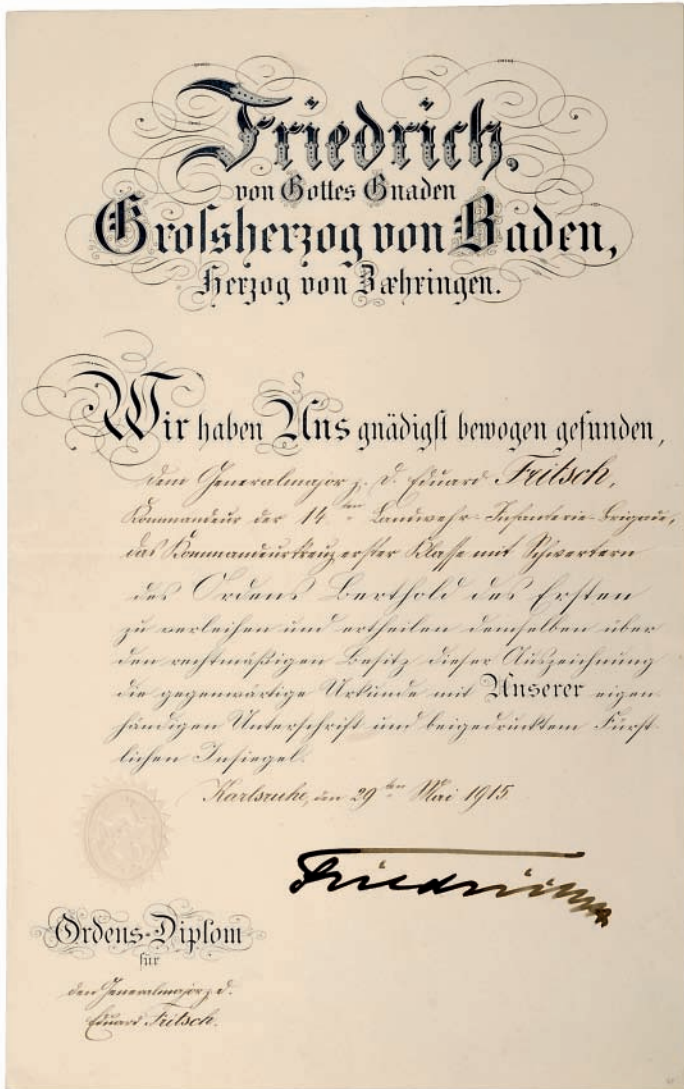 Friedrich,
von Gottes Gnaden
Grossherzog von Baden,
Herzog von Zæhringen.
Wir haben Uns gnädigst bewogen gefunden,
dem Generalmajor z. D. Eduard Fritsch,
Kommandeur der 14ten Landwehr-Infanterie-Brigade,
das Kommandeurkreuz erster Klasse mit Schwertern
des Ordens Berthold des Ersten
zu verleihen und ertheilen demselben über
den rechtmäßigen Besitz dieser Auszeichnung
die gegenwärtige Urkunde mit Unserer eigen
händigen Unterschrift und beigedrucktem Fürst-
lichen Insiegel.
Karlsruhe, den 29ten Mai 1915
Friedrich
Ordens-Diplom
für
den Generalmajor z. D.
Eduard Fritsch.